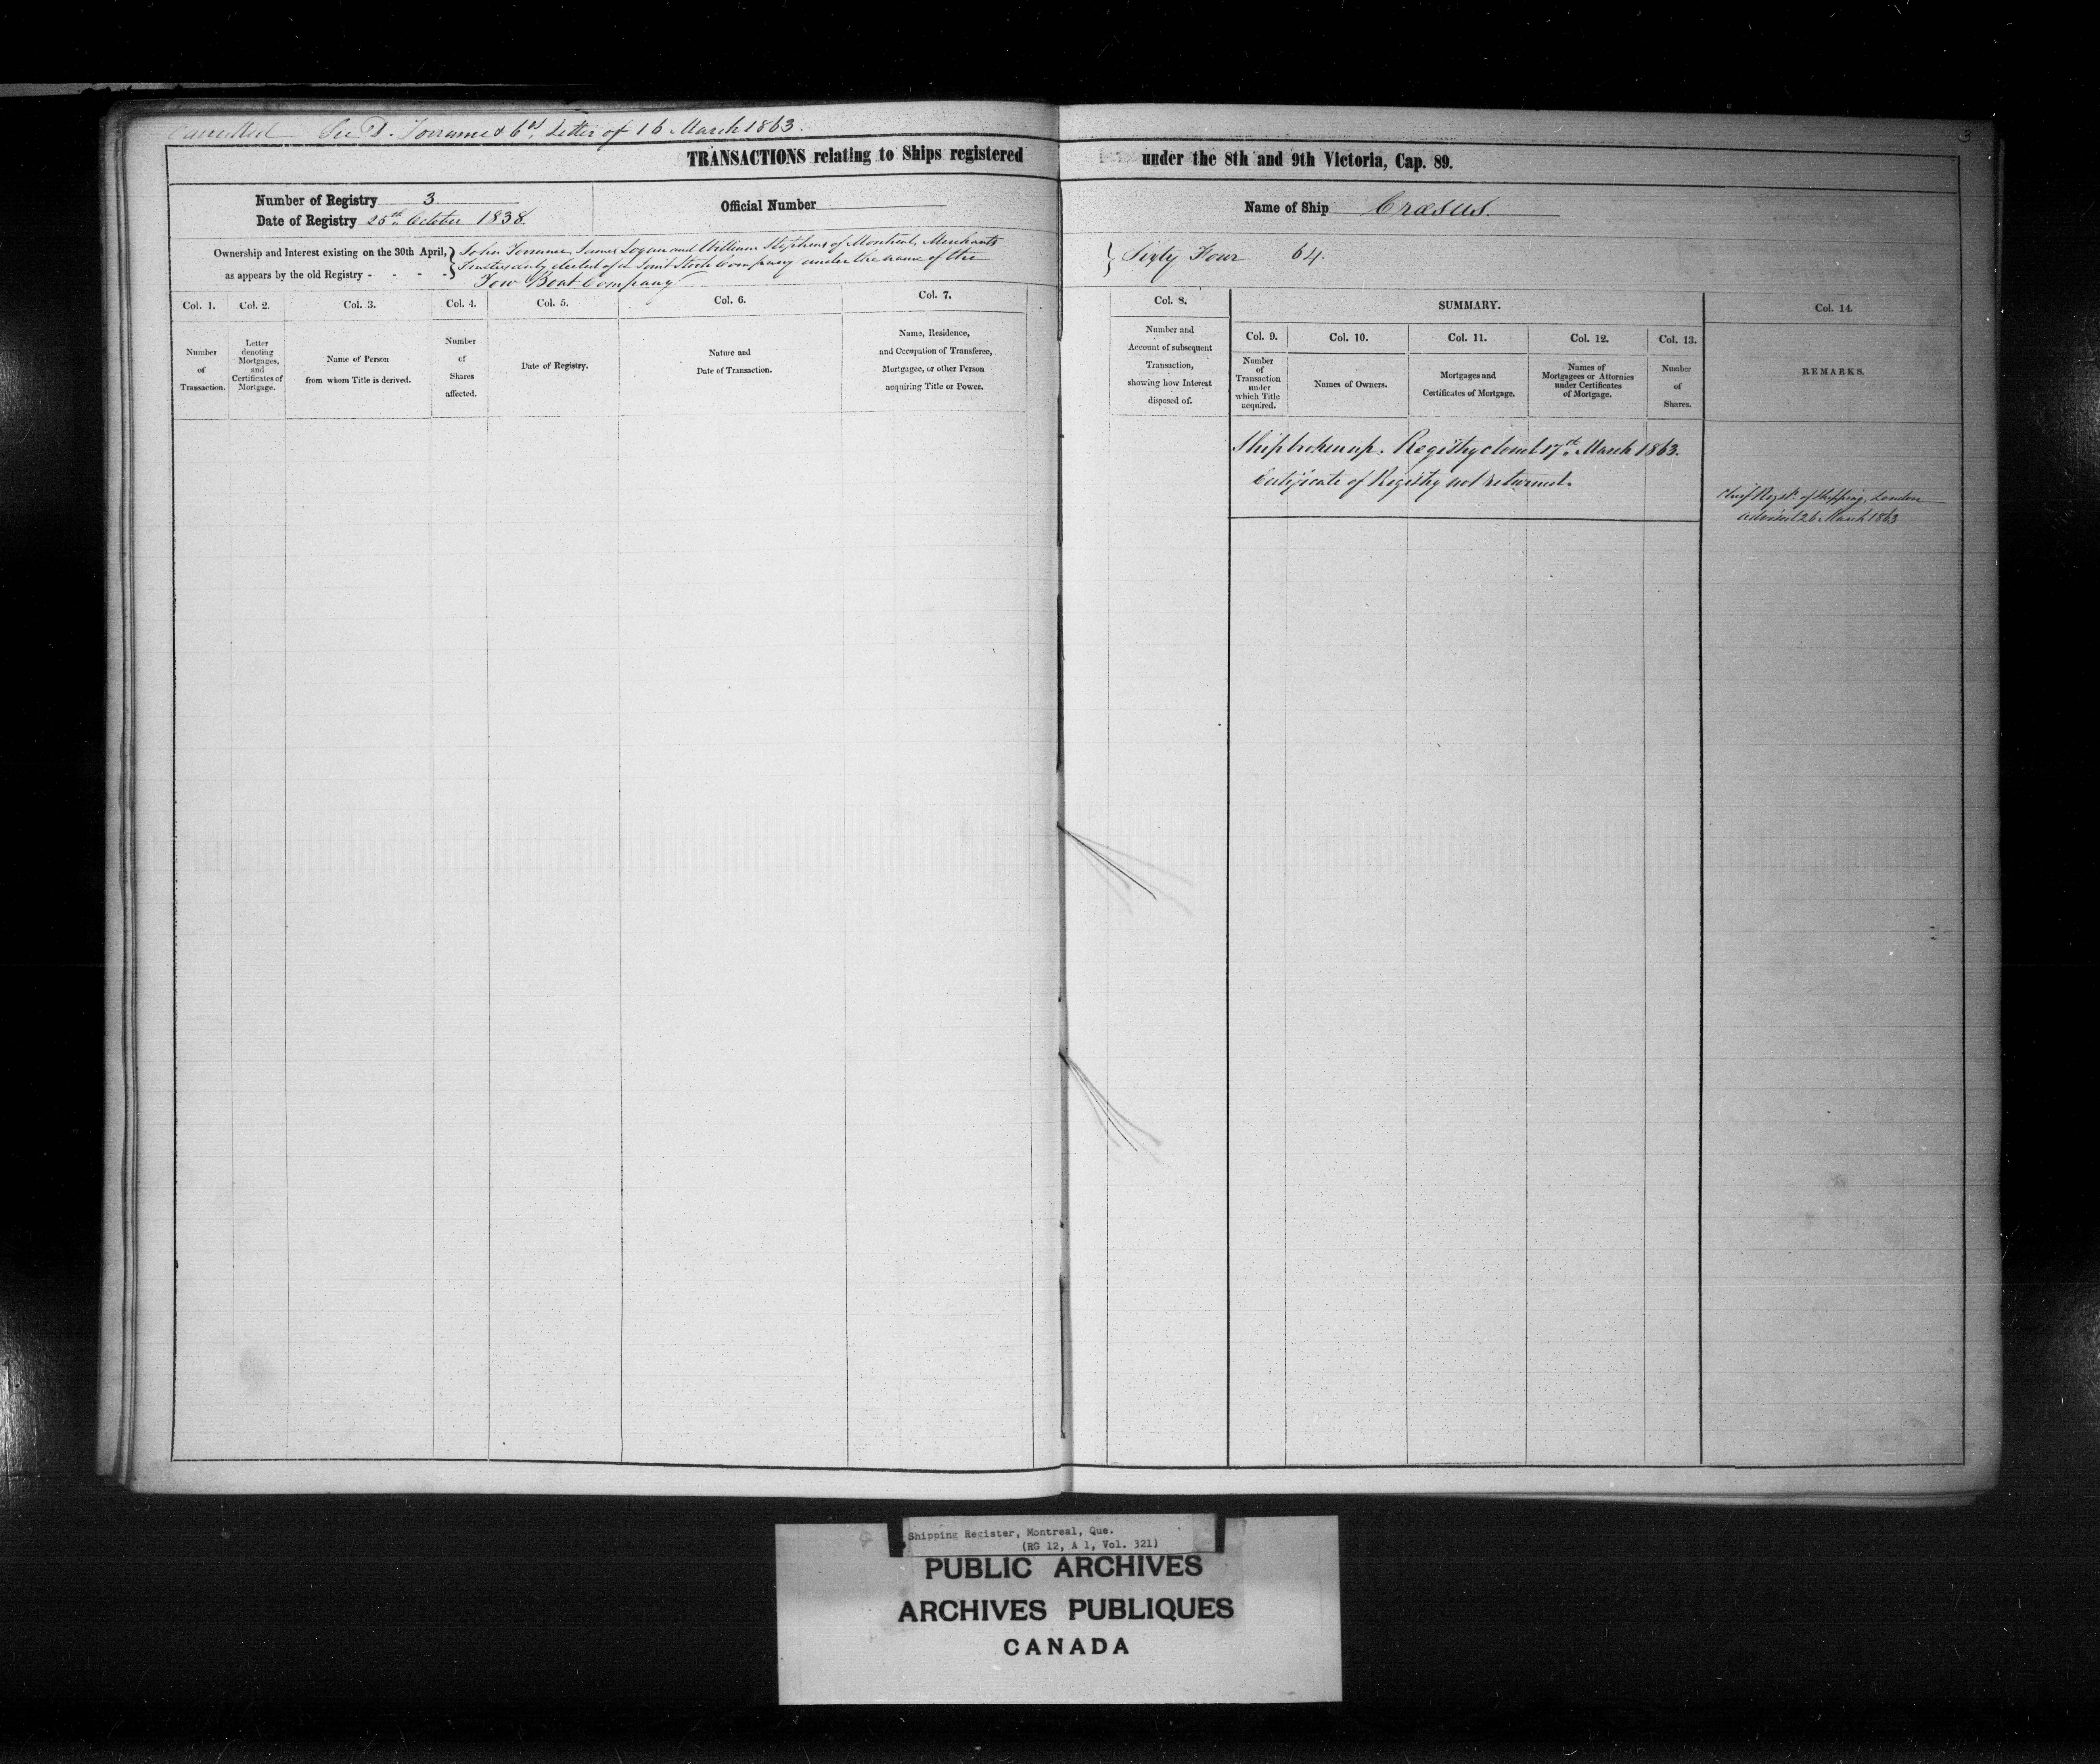 Cancelled See D. Torrance & Co's Letter of 16 March 1863.
3
TRANSACTIONS relating to Ships registered under the 8th and 9th Victoria, Cap. 89.
Number of Registry 3.
Date of Registry 25th October 1838.
Official Number
Name of Ship Crœsus.
Ownership and Interest existing on the 30th April,
as appears by the old Registry - - - -
John Torrance, James Logan and William Stephens of Montreal, Merchants
Trustees duly elected of a Joint Stock Company under the name of the
Tow Boat Company
Sixty Four 64.
Col. 1.
Number
of
Transaction.
Col. 2.
Letter
denoting
Mortgages,
and
Certificates of
Mortgage.
Col. 3.
Name of Person
from whom Title is derived.
Col. 4.
Number
of
Shares
affected.
Col. 5.
Date of Registry.
Col. 6.
Nature and
Date of Transaction.
Col. 7.
Name, Residence,
and Occupation of Transferee,
Mortgagee, or other Person
acquiring Title or Power.
Col. 8.
Number and
Account of subsequent
Transaction,
showing how Interest
disposed of.
SUMMARY.
Col. 9.
Number
of
Transaction
under
which Title
acquired.
Col. 10.
Names of Owners.
Col. 11.
Mortgages and
Certificates of Mortgage.
Col. 12.
Names of
Mortgagees or Attornies
under Certificates
of Mortgage.
Col. 13.
Number
of
Shares.
Col. 14.
REMARKS.
Ship broken up. Registry closed 17th March 1863.
Certificate of Registry not returned.
Chief Regstr. of Shipping, London
advised 26 March 1863
Shipping Register, Montreal, Que.
(RG 12, A 1, Vol. 321)
PUBLIC ARCHIVES
ARCHIVES PUBLIQUES
CANADA